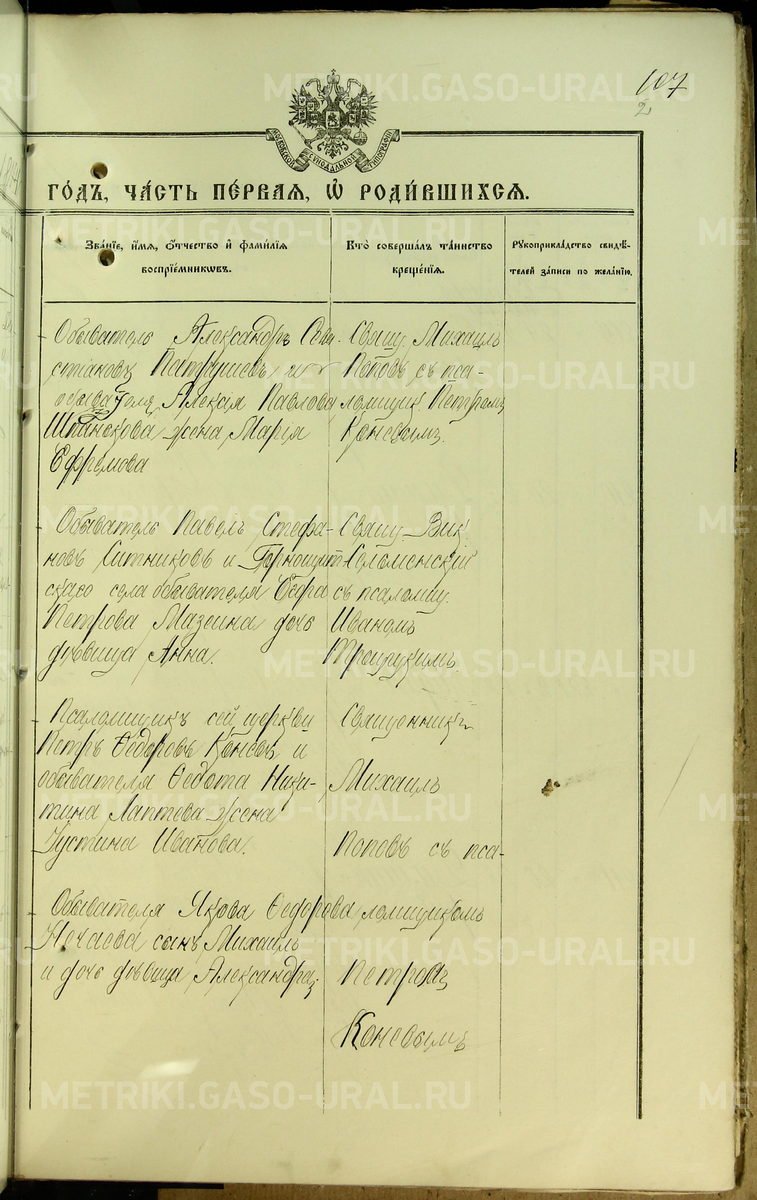 107
2
МОСКОВСКОЙ СѴНОДАЛЬНОЙ ТИПОГРАФІИ
ГО́ДЪ, ЧА́СТЬ ПЕ́РВАЯ, Ѡ҆ РОДИ́ВШИХСЯ.
Зва́нїе, и҆́мя, ѻ҆́тчество и҆ фами́лїя
воспрїе́мниковъ.
Кто̀ соверша́лъ та́инство
креще́нїя.
Рꙋкоприкла́дство свидѣ́-
телей за́писи по жела́нїю.
Обыватель Александръ Севи-
стіановъ Патрушевъ и
обывателя Алексѧ Павлова
жена Марія
Ефремова
Свящ. Михаилъ
Поповъ съ пса-
ломщик. Петромъ
Коневымъ.
Обыватель Павелъ Стефа-
новъ Ситниковъ и Горнощит-
скаго села обывателя
Петрова Мазеина дочь
дѣвица Анна.
Свящ. Вик.
Селеменскій
съ псаломщ.
Иваномъ
Троицкимъ.
Псаломщикъ сей церкви
Петръ Ѳедоровъ Коневъ и
обывателя Ѳедота Ники-
тина Лаптева жена
Іустина Иванова.
Священникъ
Михаилъ
Поповъ съ пса-
Обывателя Якова Ѳедорова
Нечаева сынъ Михаилъ
и дочь дѣвица Александра.
ломщикомъ
Петромъ
Коневымъ
METRIKI.GASO-URAL.RU